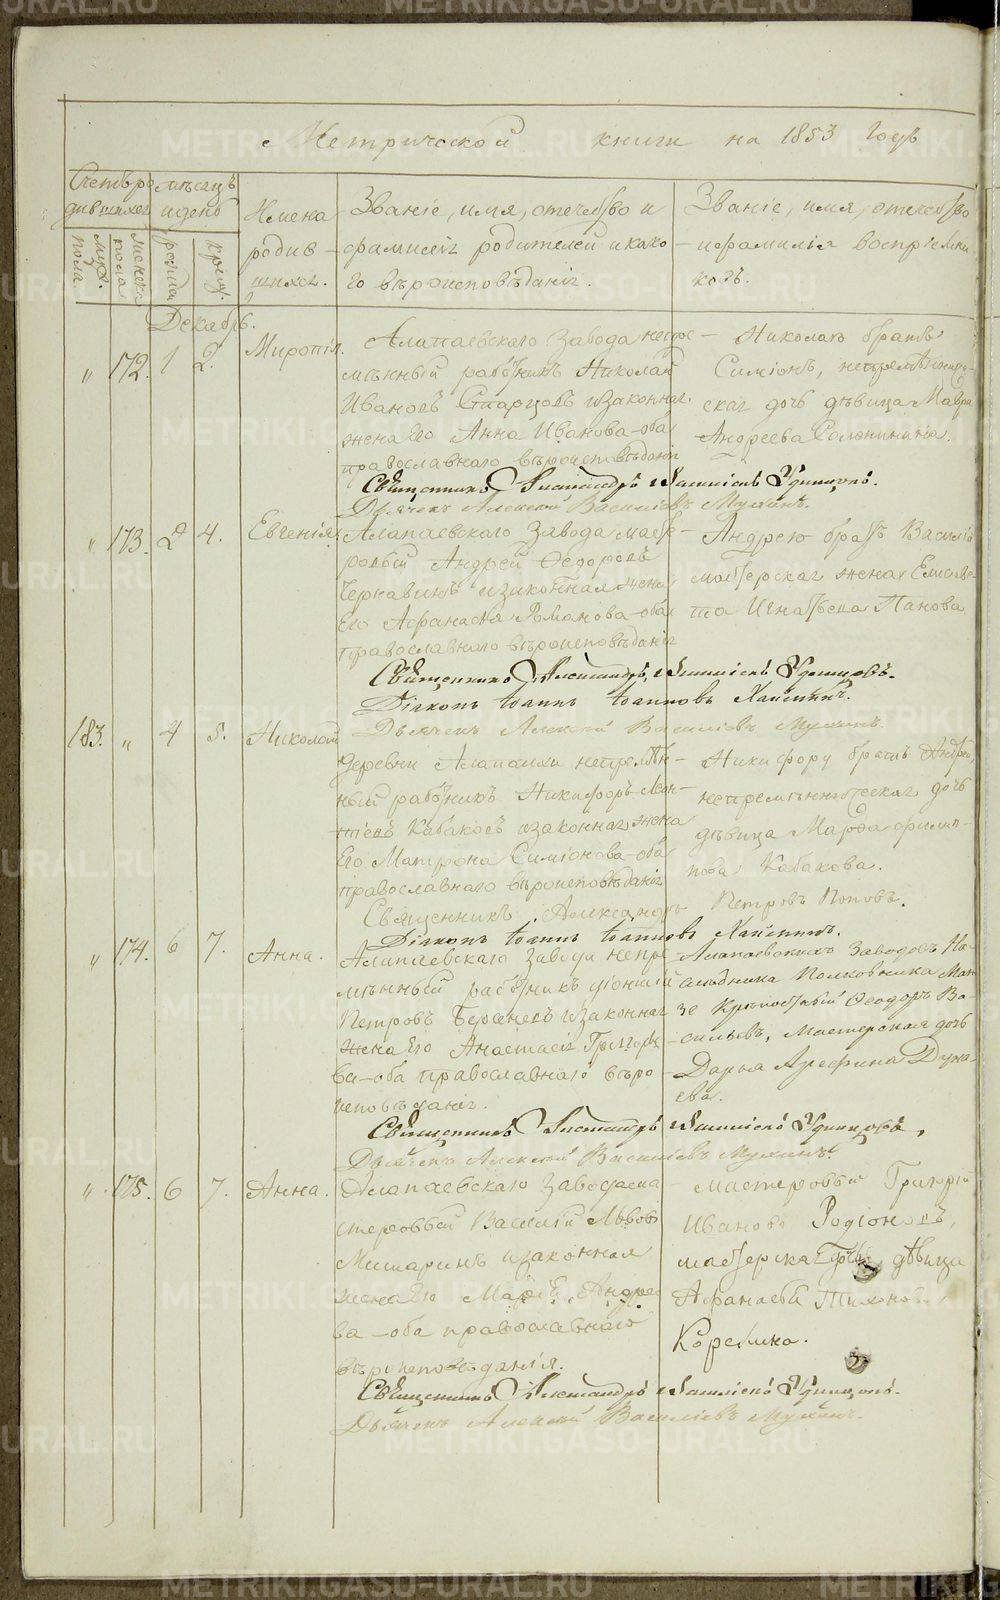 Метрической книги на 1853 Годъ
Счетъ ро
дившихся
Муж. пола.
Женска пола
мѣсяцъ
и день
рожд.
крещ.
Имена
родив-
шихся.
Званіе, имя, отечество и
фамилія родителей и како-
го вѣроисповѣданія.
Званіе, имя, отечество
и фамилія воспріемни-
ковъ.
Декабрь.
„ 172. 1 2. Миропія.
Алапаевскаго Завода непре-
мѣнный работникъ Николай
Ивановъ Старцовъ и законная
жена Его Анна Иванова оба
православнаго вѣроисповѣданія
Николаю братъ
Симіонъ, непремѣнниче-
ская дочь дѣвица Мавра
Андреева
Священникъ Александръ Удинцовъ.
Дьячекъ Алексей Васильевъ Мухинъ.
„ 173. 2 4. Евгенія
Алапаевскаго Завода масте-
ровый Андрей Федоровъ
Чернавинъ и законная жена
Его Афанасія Романова оба
православнаго вѣроисповѣданія
Андрею братъ Василій
мастерская жена Елисаве-
та Игнатьева Панова
Священникъ Александръ Удинцовъ.
Діаконъ Іоаннъ Іоанновъ
Дьячекъ Алексей Васильевъ Мухинъ.
183. „ 4 5. Николай
Деревни Алапаихи непремѣн-
ный работникъ Никифоръ Леон-
тіевъ Кабаковъ и законная жена
Его Матрона Симіонова оба
православнаго вѣроисповѣданія
Никифору братъ Андрей,
непремѣнническая дочь
дѣвица Марфа Филип-
пова Кабакова.
Священникъ Александръ Петровъ Поповъ.
Діаконъ Іоаннъ Іоанновъ
„ 174. 6 7. Анна.
Алапаевскаго Завода непре-
мѣнный работникъ
Петровъ и законная
жена Его Анастасія Григорье
ва оба православнаго вѣро
исповѣданія.
Алапаевскихъ заводовъ На-
чальника Полковника
Крѣпостный Феодоръ Ва-
сильевъ, Мастерская дочь
Дарья Арефина Дуна-
ева.
Священникъ Александръ Удинцовъ,
Дьячекъ Алексей Васильевъ Мухинъ.
„ 175. 6 7. Анна.
Алапаевскаго Завода ма
стеровый Василій Львовъ
Мишаринъ и законная
жена Его Марія Андрее
ва оба православнаго
вѣроисповѣданія.
мастеровый Григорій
Ивановъ Родіоновъ,
мастерская дочь дѣвица
Афанасія Тихонова
Корелина.
Священникъ Александръ Удинцовъ.
Дьячекъ Алексей Васильевъ Мухинъ.
METRIKI.GASO-URAL.RU